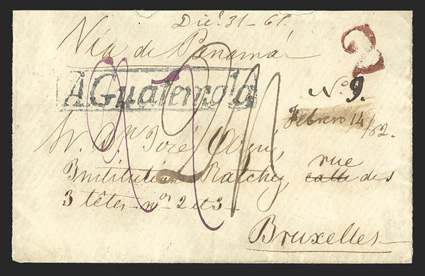 Dic. 31-61.
Via de Panamá
2
A Guatemala
No. 9.
Febrero 14/62.
Dn. José
Institution Ratchez, rue
calle des
3 têtes - no. 2 et 3 -
Bruxelles -